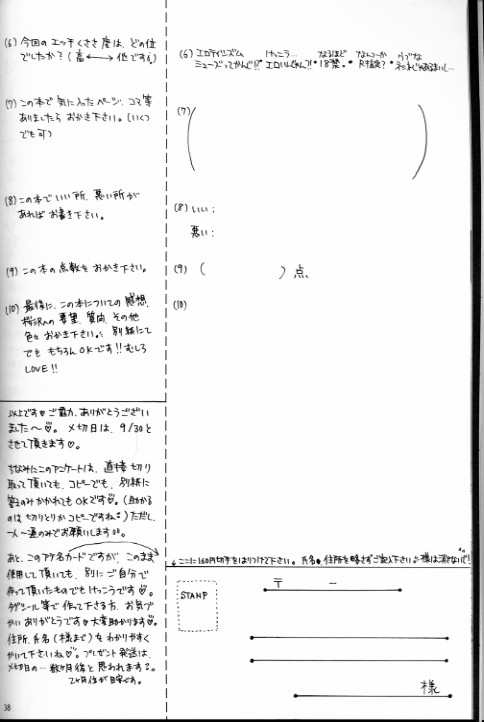 (6) 今回の エッチくささ 度は、どの位
でしたか?(高 ←→ 低です)
(7) この本で 気に入ったページ、コマ等
ありましたら おかき下さい。(いくつ
でも可)
(8) この本で いい所、悪い所が
あれば お書き下さい。
(9) この本の 点数を おかき下さい。
(10) 最後に、この本についての 感想、
への 要望、質問、その他
色々 おかき下さい。 別紙にて
でも もちろん OKです!!むしろ
LOVE!!
以上です♥ ご協力、ありがとうござい
ました〜♡。 〆切日は、9/30と
させて頂きます♡。
ちなみにこのアンケートは、直接 切り
取って頂いても、コピーでも、別紙に
答えのみ かかれても OKです♡。(助かる
のは 切りとりか コピーですね)ただし、
一人一通のみで お願いします。
あと、このアテ名カードですが、このまま
使用して頂いても、別に ご自分で
作って頂いたものでも けっこうです♡。
タックシール等で 作って下さる方、お気づ
かい ありがとうです♥大変助かります♡。
住所、氏名(様まで)を わかりやすく
かいて下さいね♡。プレゼント発送は、
〆切日の… 数ヶ月後と 思われます。
2ヶ月位が目安です。
38
(6) エロティシズム けっこう… なるほど なんつーか
ミューズってかんじ!! エロいじゃん?! 18禁。 R指定?
(7) ( )
(8) いい:
悪い:
(9) ( ) 点
(10)
↓ここに160円切手をはりつけて下さい。 氏名・住所を略さずご記入下さい。様は消さないで!
STAMP
〒 -
様